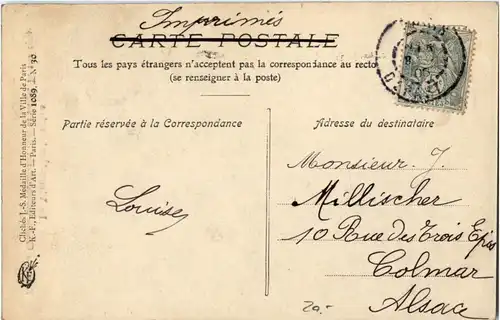 Imprimés
CARTE POSTALE
Tous les pays étrangers n'acceptent pas la correspondance au recto
(se renseigner à la poste)
Partie réservée à la Correspondance
Adresse du destinataire
Louise
Monsieur. J.
Millischer
10 Rue des Trois Epis
Colmar
Alsace
20.-
Clichés J.-S. Médaille d'Honneur de la Ville de Paris
K.-F., Editeurs d'Art. — Paris. — Série 1089. — N° 30